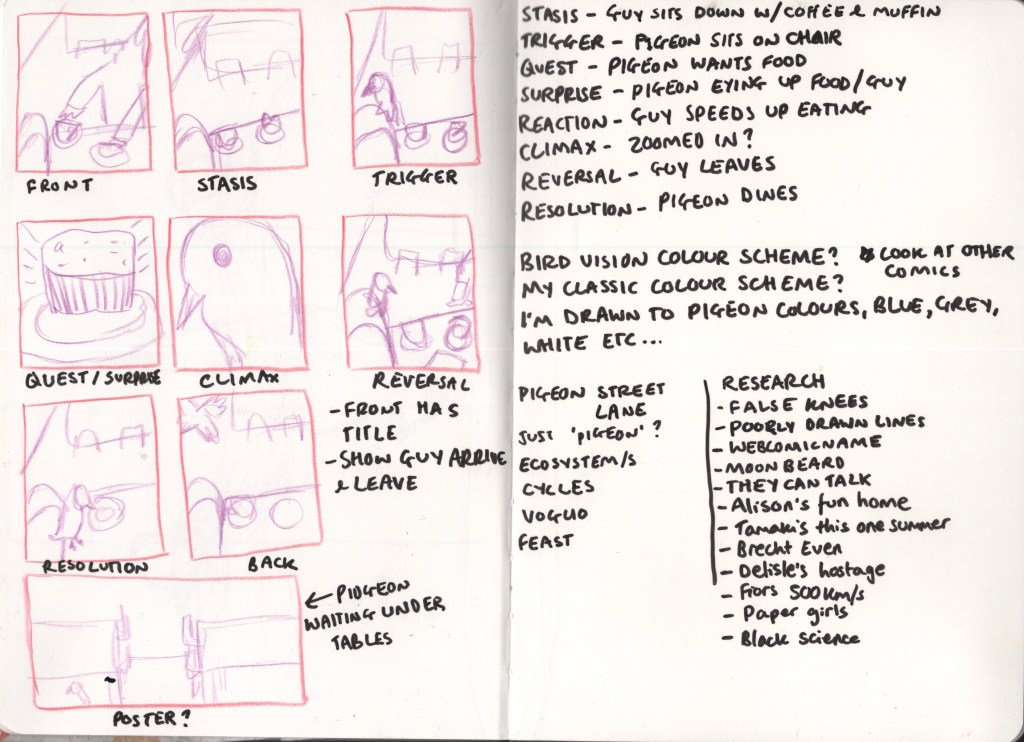 FRONT
STASIS
TRIGGER
QUEST/SURPRISE
CLIMAX
REVERSAL
- FRONT HAS
TITLE
- SHOW GUY ARRIVE
& LEAVE
RESOLUTION
BACK
← PIDGEON
WAITING UNDER
TABLES
POSTER?
STASIS - GUY SITS DOWN W/COFFEE & MUFFIN
TRIGGER - PIGEON SITS ON CHAIR
QUEST - PIGEON WANTS FOOD
SURPRISE - PIGEON EYING UP FOOD/GUY
REACTION - GUY SPEEDS UP EATING
CLIMAX - ZOOMED IN?
REVERSAL - GUY LEAVES
RESOLUTION - PIGEON DINES
BIRD VISION COLOUR SCHEME?
* LOOK AT OTHER
COMICS
MY CLASSIC COLOUR SCHEME?
I'M DRAWN TO PIGEON COLOURS, BLUE, GREY,
WHITE ETC...
PIGEON STREET
LANE
JUST 'PIGEON'?
ECOSYSTEM/S
CYCLES
VOGLIO
FEAST
RESEARCH
- FALSE KNEES
- POORLY DRAWN LINES
- WEBCOMICNAME
- MOON BEARD
- THEY CAN TALK
- Alison's fun home
- Tamaki's this one summer
- Brecht Even
- Delisle's hostage
- Fiors 500Km/s
- Paper girls
- Black science